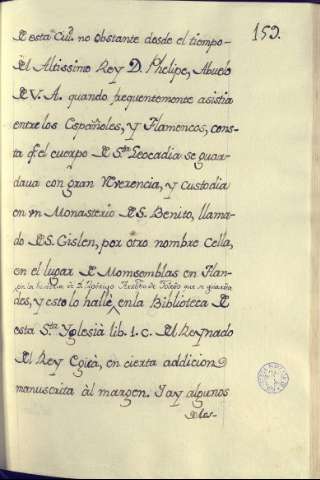 159.
de esta Ciu.d no obstante desde el tiempo
del Altissimo Rey D. Phelipe, Abuelo
de V. A. quando frequentemente asistia
entre los Españoles, y Flamencos, cons-
ta q.e el cuerpo de S.ta Leocadia se guar-
daua con gran reverencia, y custodia
en vn Monasterio de S. Benito, llama-
do de S. Gislen, por otro nombre Cella,
en el lugar de Momsemblas en Flan-
en la historia de D. Rodrigo Arzobpo de Toledo que se guarda
des, y esto lo hallè ^ en la Biblioteca de
esta S.ta Yglesia lib. 1. c. del Reynado
del Rey Egica, en cierta addicion
manuscrita àl margen. I ay algunos